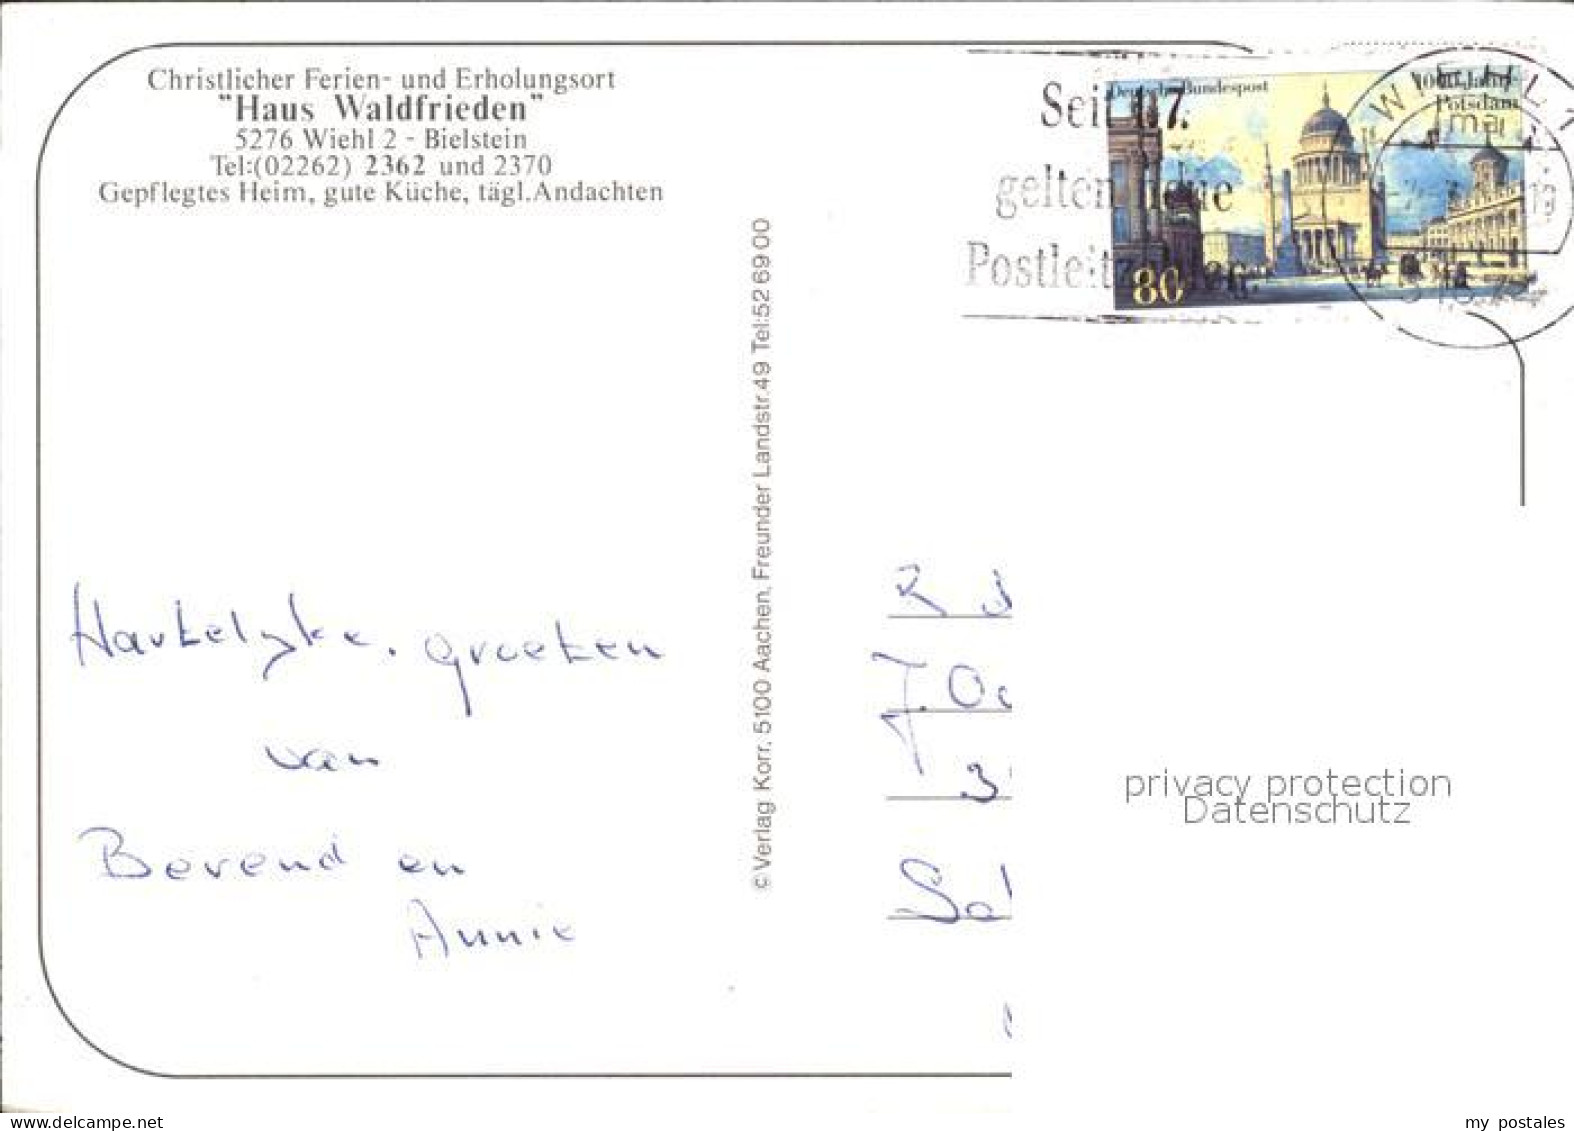 Christlicher Ferien- und Erholungsort
"Haus Waldfrieden"
5276 Wiehl 2 - Bielstein
Tel:(02262) 2362 und 2370
Gepflegtes Heim, gute Küche, tägl.Andachten
Seit 1.7.
gelten neue
Postleitzahlen.
Deutsche Bundespost
1000 Jahre
Potsdam
80
WIEHL 1
mai
© Verlag Korr. 5100 Aachen, Freunder Landstr.49 Tel:52 69 00
Hartelyke. groeten
van
Berend en
Annie
privacy protection
Datenschutz
my postales